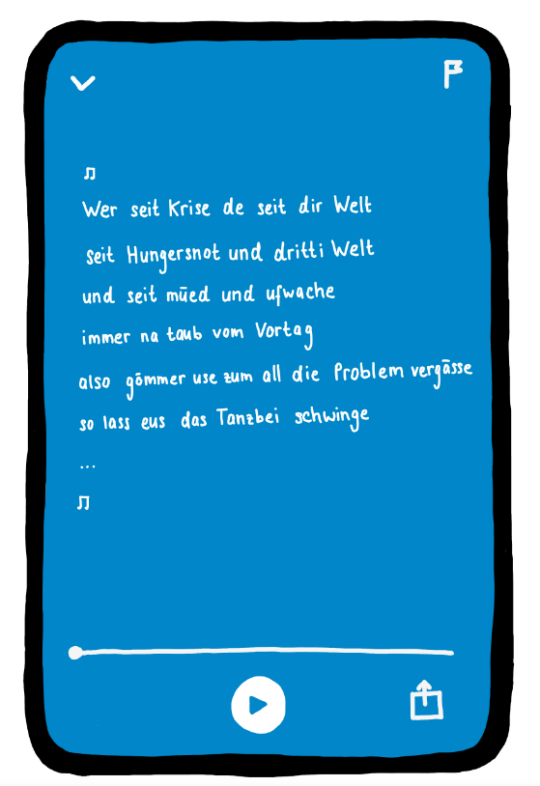 ♫
Wer seit Krise de seit dir Welt
seit Hungersnot und dritti Welt
und seit müed und ufwache
immer na taub vom Vortag
also gömmer use zum all die Problem vergässe
so lass eus das Tanzbei schwinge
...
♫